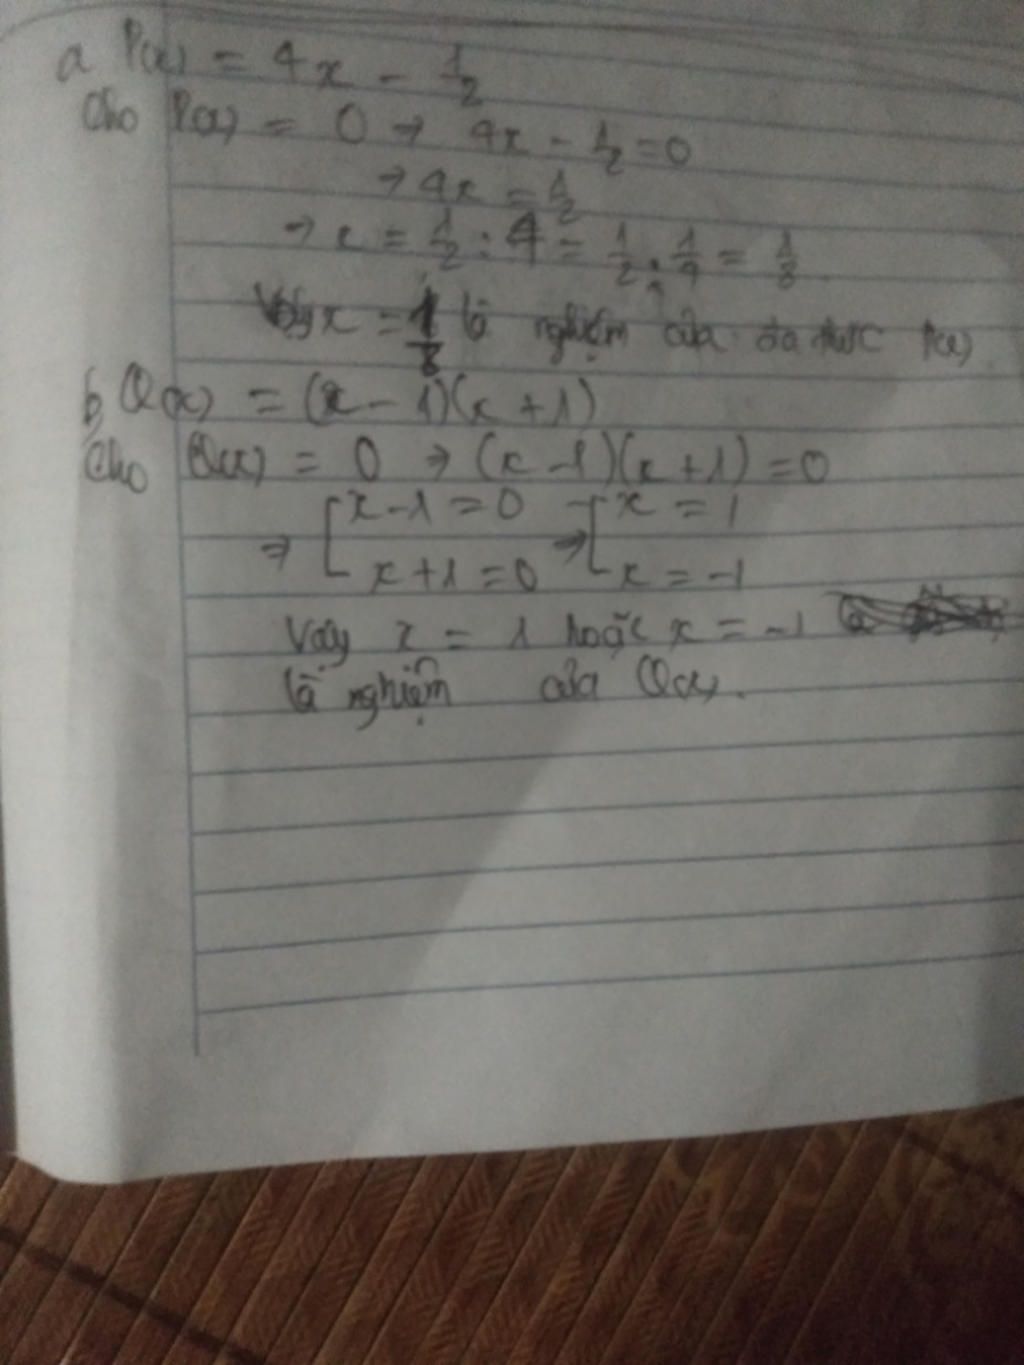 a P(x) = 4x - 1/2
Cho P(x) = 0 → 4x - 1/2 = 0
→ 4x = 1/2
→ x = 1/2 : 4 = 1/2 . 1/4 = 1/8
Vậy x = 1/8 là nghiệm của đa thức P(x)
b, Q(x) = (x - 1)(x + 1)
Cho Q(x) = 0 → (x - 1)(x + 1) = 0
⇒ [ x - 1 = 0 → [ x = 1
x + 1 = 0 x = -1
Vậy x = 1 hoặc x = -1
là nghiệm của Q(x).